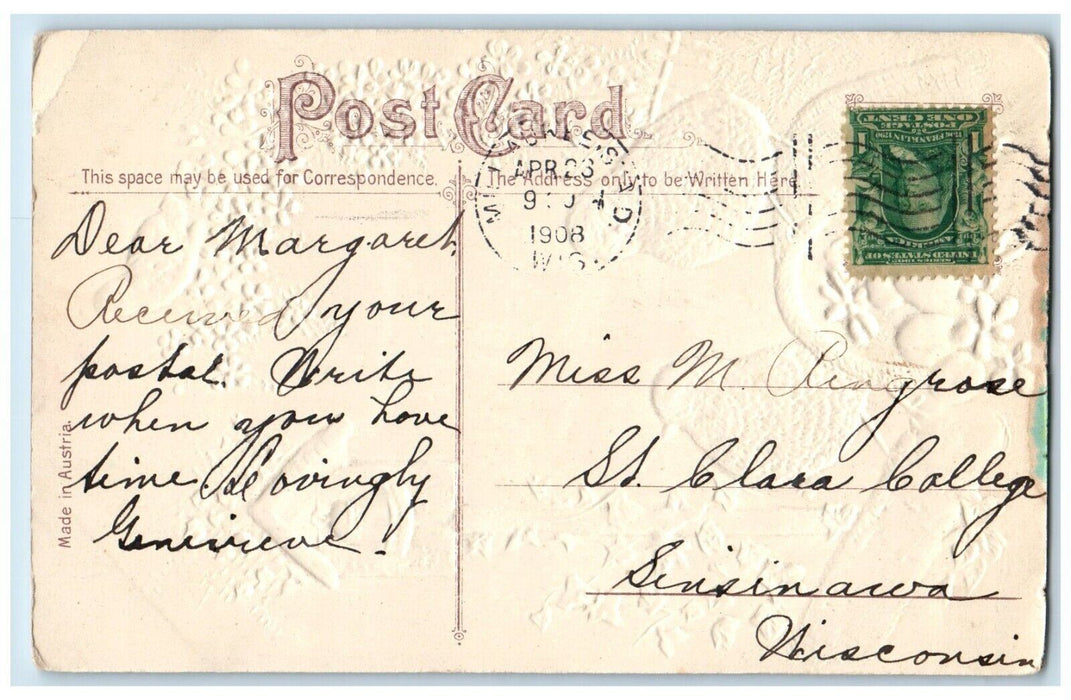 Post Card
This space may be used for Correspondence.
The Address only to be Written Here
APR 23
1908
WIS
UNITED STATES OF
AMERICA
POSTAGE
ONE CENT
Dear Margaret,
Received your
postal. Write
when you have
time Lovingly
Genevieve.
Miss M. Ringrose
St. Clara College
Sinsinawa
Wisconsin
Made in Austria.